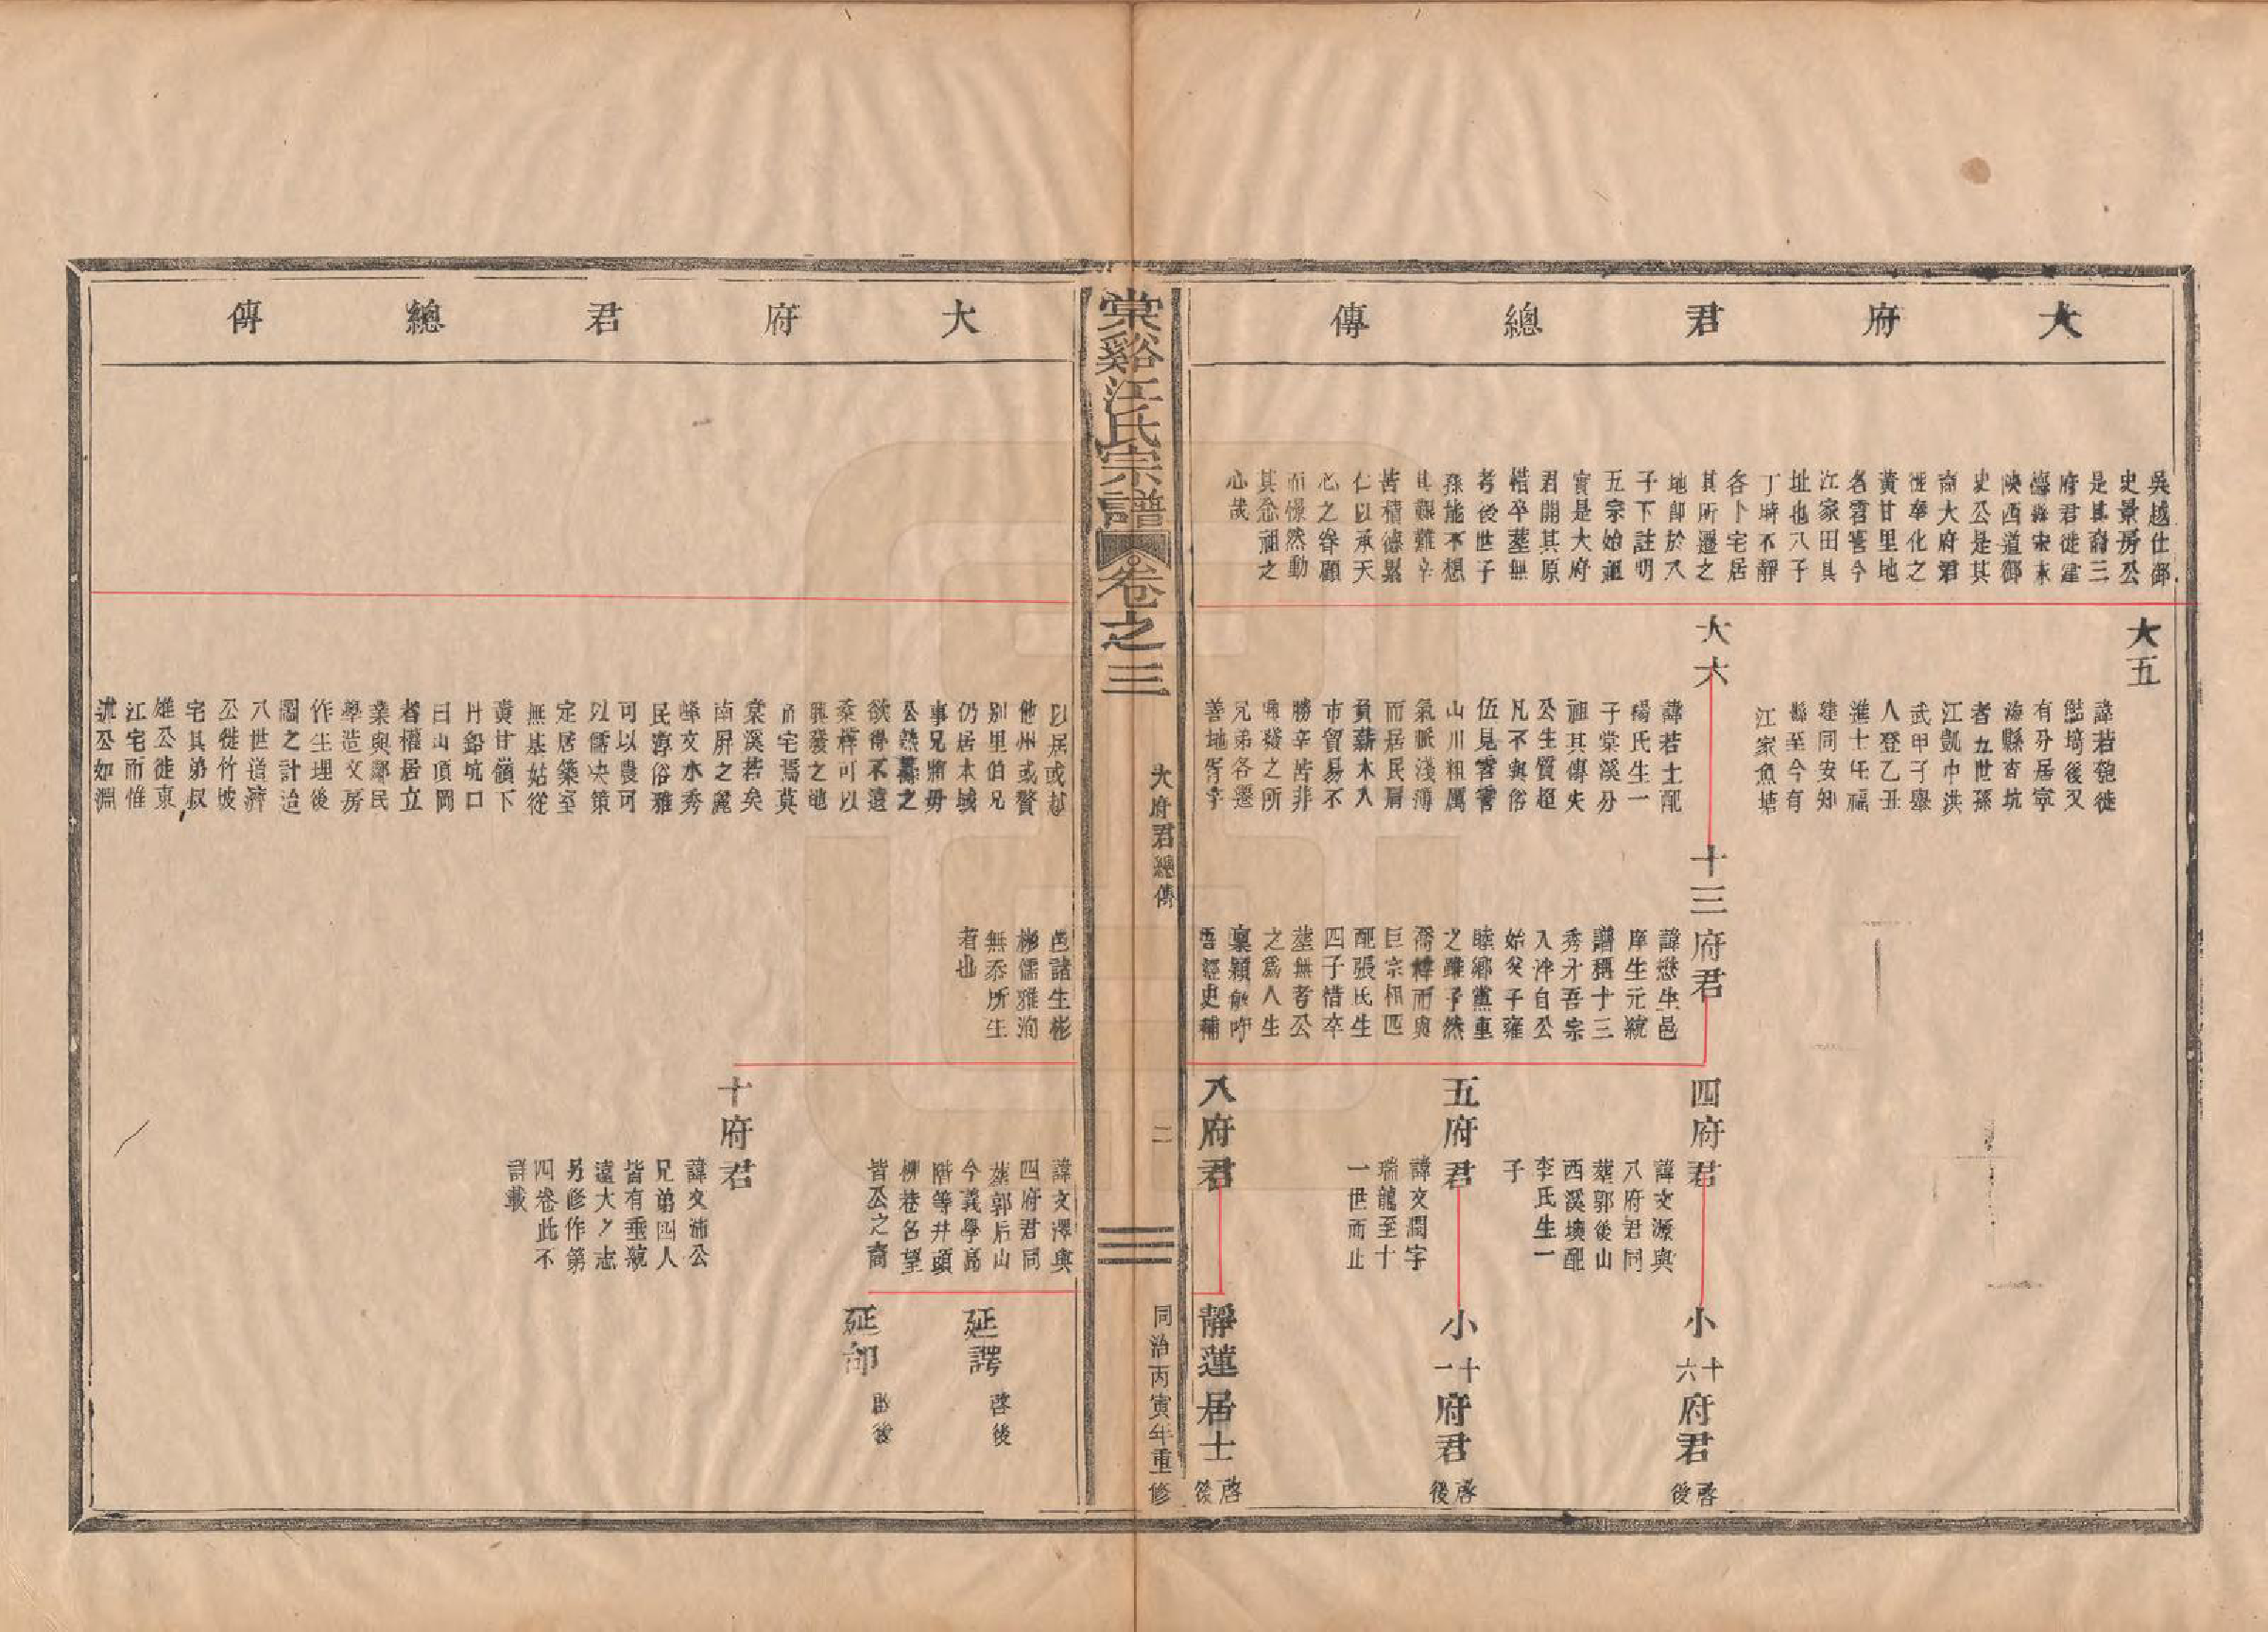 大府君總傳
吳越仕御
史景房公
是其裔三
府君徙建
德縣宋末
陝西道御
史公是其
裔大府君
徙奉化之
黃甘里地
名雲霄今
江家田其
址也八子
丁時不靜
各卜宅居
其所遷之
地卽於八
子下註明
五宗始祖
實是大府
君開其原
惜卒墓無
考後世子
孫能不想
其艱難辛
苦積德累
仁以承天
心之眷顧
而憬然動
其念祖之
心哉
大五
諱若
有分居寧
海縣杏坑
者五世孫
江凱中洪
武甲子舉
人登乙丑
進士任福
建同安知
縣至今有
江家魚塘
大六
諱若士配
楊氏生一
子棠溪分
祖其傳失
公生質超
凡不與俗
伍見雲霄
山川粗厲
氣脈淺薄
而居民屑
負薪木入
市貿易不
勝辛苦非
興發之所
兄弟各遷
善地胥宇
十三府君
諱懋生邑
庠生元統
譜稱十三
秀才吾宗
入泮自公
始父子雍
睦鄉黨重
之雖孑然
喬梓而與
巨宗相匹
配張氏生
四子惜卒
塟無考公
之爲人生
稟穎敏吟
吾經史補
四府君
諱文源與
八府君同
塟郭後山
西溪墺配
李氏生一
子
小十六府君 啓後
五府君
諱文潤字
瑞龍至十
一世而止
小十一府君 啓後
八府君
靜蓮居士 啓後
棠谿江氏宗譜 卷之三 大府君總傳 二 同治丙寅年重修
大府君總傳
以居或越
他州或贅
別里伯兄
仍居本域
事兄將毋
公
欲得不遠
桑梓可以
興發之地
而宅焉莫
棠溪若矣
南屏之麗
峰文水秀
民淳俗雅
可以農可
以儒决策
定居築室
無基姑從
黃甘嶺下
丹鉛坑口
曰山頂岡
者權居立
業與鄰民
學造文房
作生理後
圖之計迨
八世道濟
公徙竹坡
宅其弟叔
雄公徙東
江宅而惟
述公如淵
邑諸生彬
彬儒雅洵
無忝所生
者也
諱文澤與
四府君同
塟郭后山
今義學高
階等井頭
柳巷名望
皆公之裔
延諤 啓後
延 啓後
十府君
諱文沛公
兄弟四人
皆有垂統
遠大之志
另修作第
四卷此不
詳載